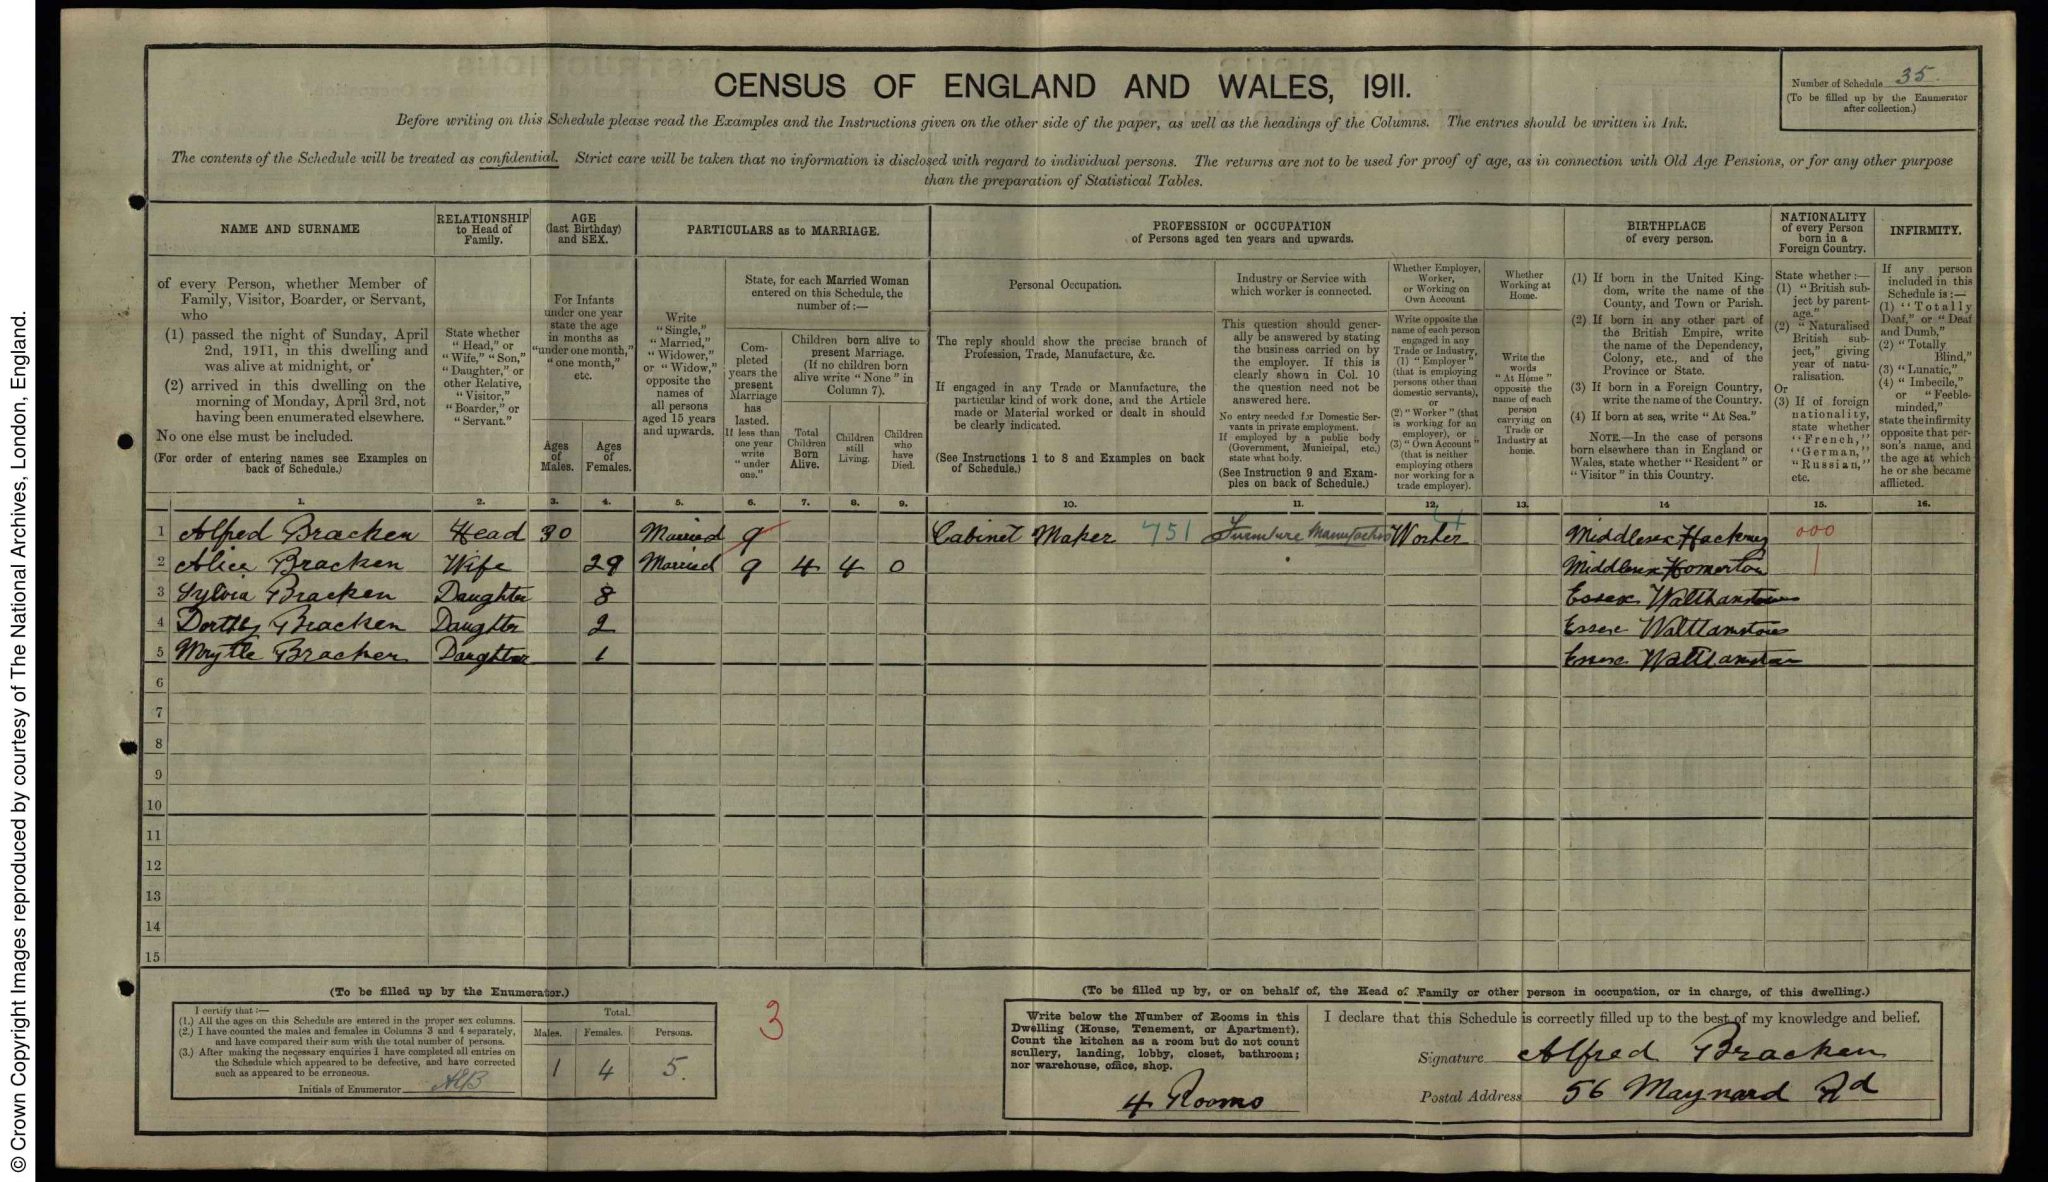 CENSUS OF ENGLAND AND WALES, 1911.
Number of Schedule 35.
(To be filled up by the Enumerator
after collection.)
Before writing on this Schedule please read the Examples and the Instructions given on the other side of the paper, as well as the headings of the Columns. The entries should be written in Ink.
The contents of the Schedule will be treated as confidential. Strict care will be taken that no information is disclosed with regard to individual persons. The returns are not to be used for proof of age, as in connection with Old Age Pensions, or for any other purpose
than the preparation of Statistical Tables.
NAME AND SURNAME
of every Person, whether Member of
Family, Visitor, Boarder, or Servant,
who
(1) passed the night of Sunday, April
2nd, 1911, in this dwelling and
was alive at midnight, or
(2) arrived in this dwelling on the
morning of Monday, April 3rd, not
having been enumerated elsewhere.
No one else must be included.
(For order of entering names see Examples on
back of Schedule.)
RELATIONSHIP
to Head of
Family.
State whether
"Head," or
"Wife," "Son,"
"Daughter," or
other Relative,
"Visitor,"
"Boarder," or
"Servant."
AGE
(last Birthday)
and SEX.
For Infants
under one year
state the age
in months as
"under one month,"
"one month,"
etc.
Ages
of
Males.
Ages
of
Females.
PARTICULARS as to MARRIAGE.
Write
"Single,"
"Married,"
"Widower,"
or "Widow,"
opposite the
names of
all persons
aged 15 years
and upwards.
State, for each Married Woman
entered on this Schedule, the
number of:—
Com-
pleted
years the
present
Marriage
has
lasted.
If less than
one year
write
"under
one."
Children born alive to
present Marriage.
(If no children born
alive write "None" in
Column 7).
Total
Children
Born
Alive.
Children
still
Living.
Children
who
have
Died.
PROFESSION or OCCUPATION
of Persons aged ten years and upwards.
Personal Occupation.
The reply should show the precise branch of
Profession, Trade, Manufacture, &c.
If engaged in any Trade or Manufacture, the
particular kind of work done, and the Article
made or Material worked or dealt in should
be clearly indicated.
(See Instructions 1 to 8 and Examples on back
of Schedule.)
Industry or Service with
which worker is connected.
This question should gener-
ally be answered by stating
the business carried on by
the employer. If this is
clearly shown in Col. 10
the question need not be
answered here.
No entry needed for Domestic Ser-
vants in private employment.
If employed by a public body
(Government, Municipal, etc.)
state what body.
(See Instruction 9 and Exam-
ples on back of Schedule.)
Whether Employer,
Worker,
or Working on
Own Account
Write opposite the
name of each person
engaged in any
Trade or Industry,
(1) "Employer"
(that is employing
persons other than
domestic servants),
or
(2) "Worker" (that
is working for an
employer), or
(3) "Own Account"
(that is neither
employing others
nor working for a
trade employer).
Whether
Working at
Home.
Write the
words
"At Home"
opposite the
name of each
person
carrying on
Trade or
Industry at
home.
BIRTHPLACE
of every person.
(1) If born in the United King-
dom, write the name of the
County, and Town or Parish.
(2) If born in any other part of
the British Empire, write
the name of the Dependency,
Colony, etc., and of the
Province or State.
(3) If born in a Foreign Country,
write the name of the Country.
(4) If born at sea, write "At Sea."
NOTE.—In the case of persons
born elsewhere than in England or
Wales, state whether "Resident" or
"Visitor" in this Country.
NATIONALITY
of every Person
born in a
Foreign Country.
State whether:—
(1) "British sub-
ject by parent-
age."
(2) "Naturalised
British sub-
ject," giving
year of natu-
ralisation.
Or
(3) If of foreign
nationality,
state whether
"French,"
"German,"
"Russian,"
etc.
INFIRMITY.
If any person
included in this
Schedule is:—
(1) "Totally
Deaf," or "Deaf
and Dumb,"
(2) "Totally
Blind,"
(3) "Lunatic,"
(4) "Imbecile,"
or "Feeble-
minded,"
state the infirmity
opposite that per-
son's name, and
the age at which
he or she became
afflicted.
1. 2. 3. 4. 5. 6. 7. 8. 9. 10. 11. 12. 13. 14 15. 16.
1 Alfred Bracken Head 30 Married 9 Cabinet Maker 751 Furniture Worker 4 Middlesex Hackney 000
2 Alice Bracken Wife 29 Married 9 4 4 0 Middlesex Homerton 1
3 Sylvia Bracken Daughter 8 Essex Walthamstow
4 Bracken Daughter 2 Essex Walthamstow
5 Mrytle Bracken Daughter 1 Essex Walthamstow
6
7
8
9
10
11
12
13
14
15
(To be filled up by the Enumerator.)
I certify that:—
(1.) All the ages on this Schedule are entered in the proper sex columns.
(2.) I have counted the males and females in Columns 3 and 4 separately,
and have compared their sum with the total number of persons.
(3.) After making the necessary enquiries I have completed all entries on
the Schedule which appeared to be defective, and have corrected
such as appeared to be erroneous.
Initials of Enumerator
Total.
Males. Females. Persons.
1 4 5.
3
(To be filled up by, or on behalf of, the Head of Family or other person in occupation, or in charge, of this dwelling.)
Write below the Number of Rooms in this
Dwelling (House, Tenement, or Apartment).
Count the kitchen as a room but do not count
scullery, landing, lobby, closet, bathroom;
nor warehouse, office, shop.
4 Rooms
I declare that this Schedule is correctly filled up to the best of my knowledge and belief.
Signature Alfred Bracken
Postal Address 56 Maynard Rd
© Crown Copyright Images reproduced by courtesy of The National Archives, London, England.